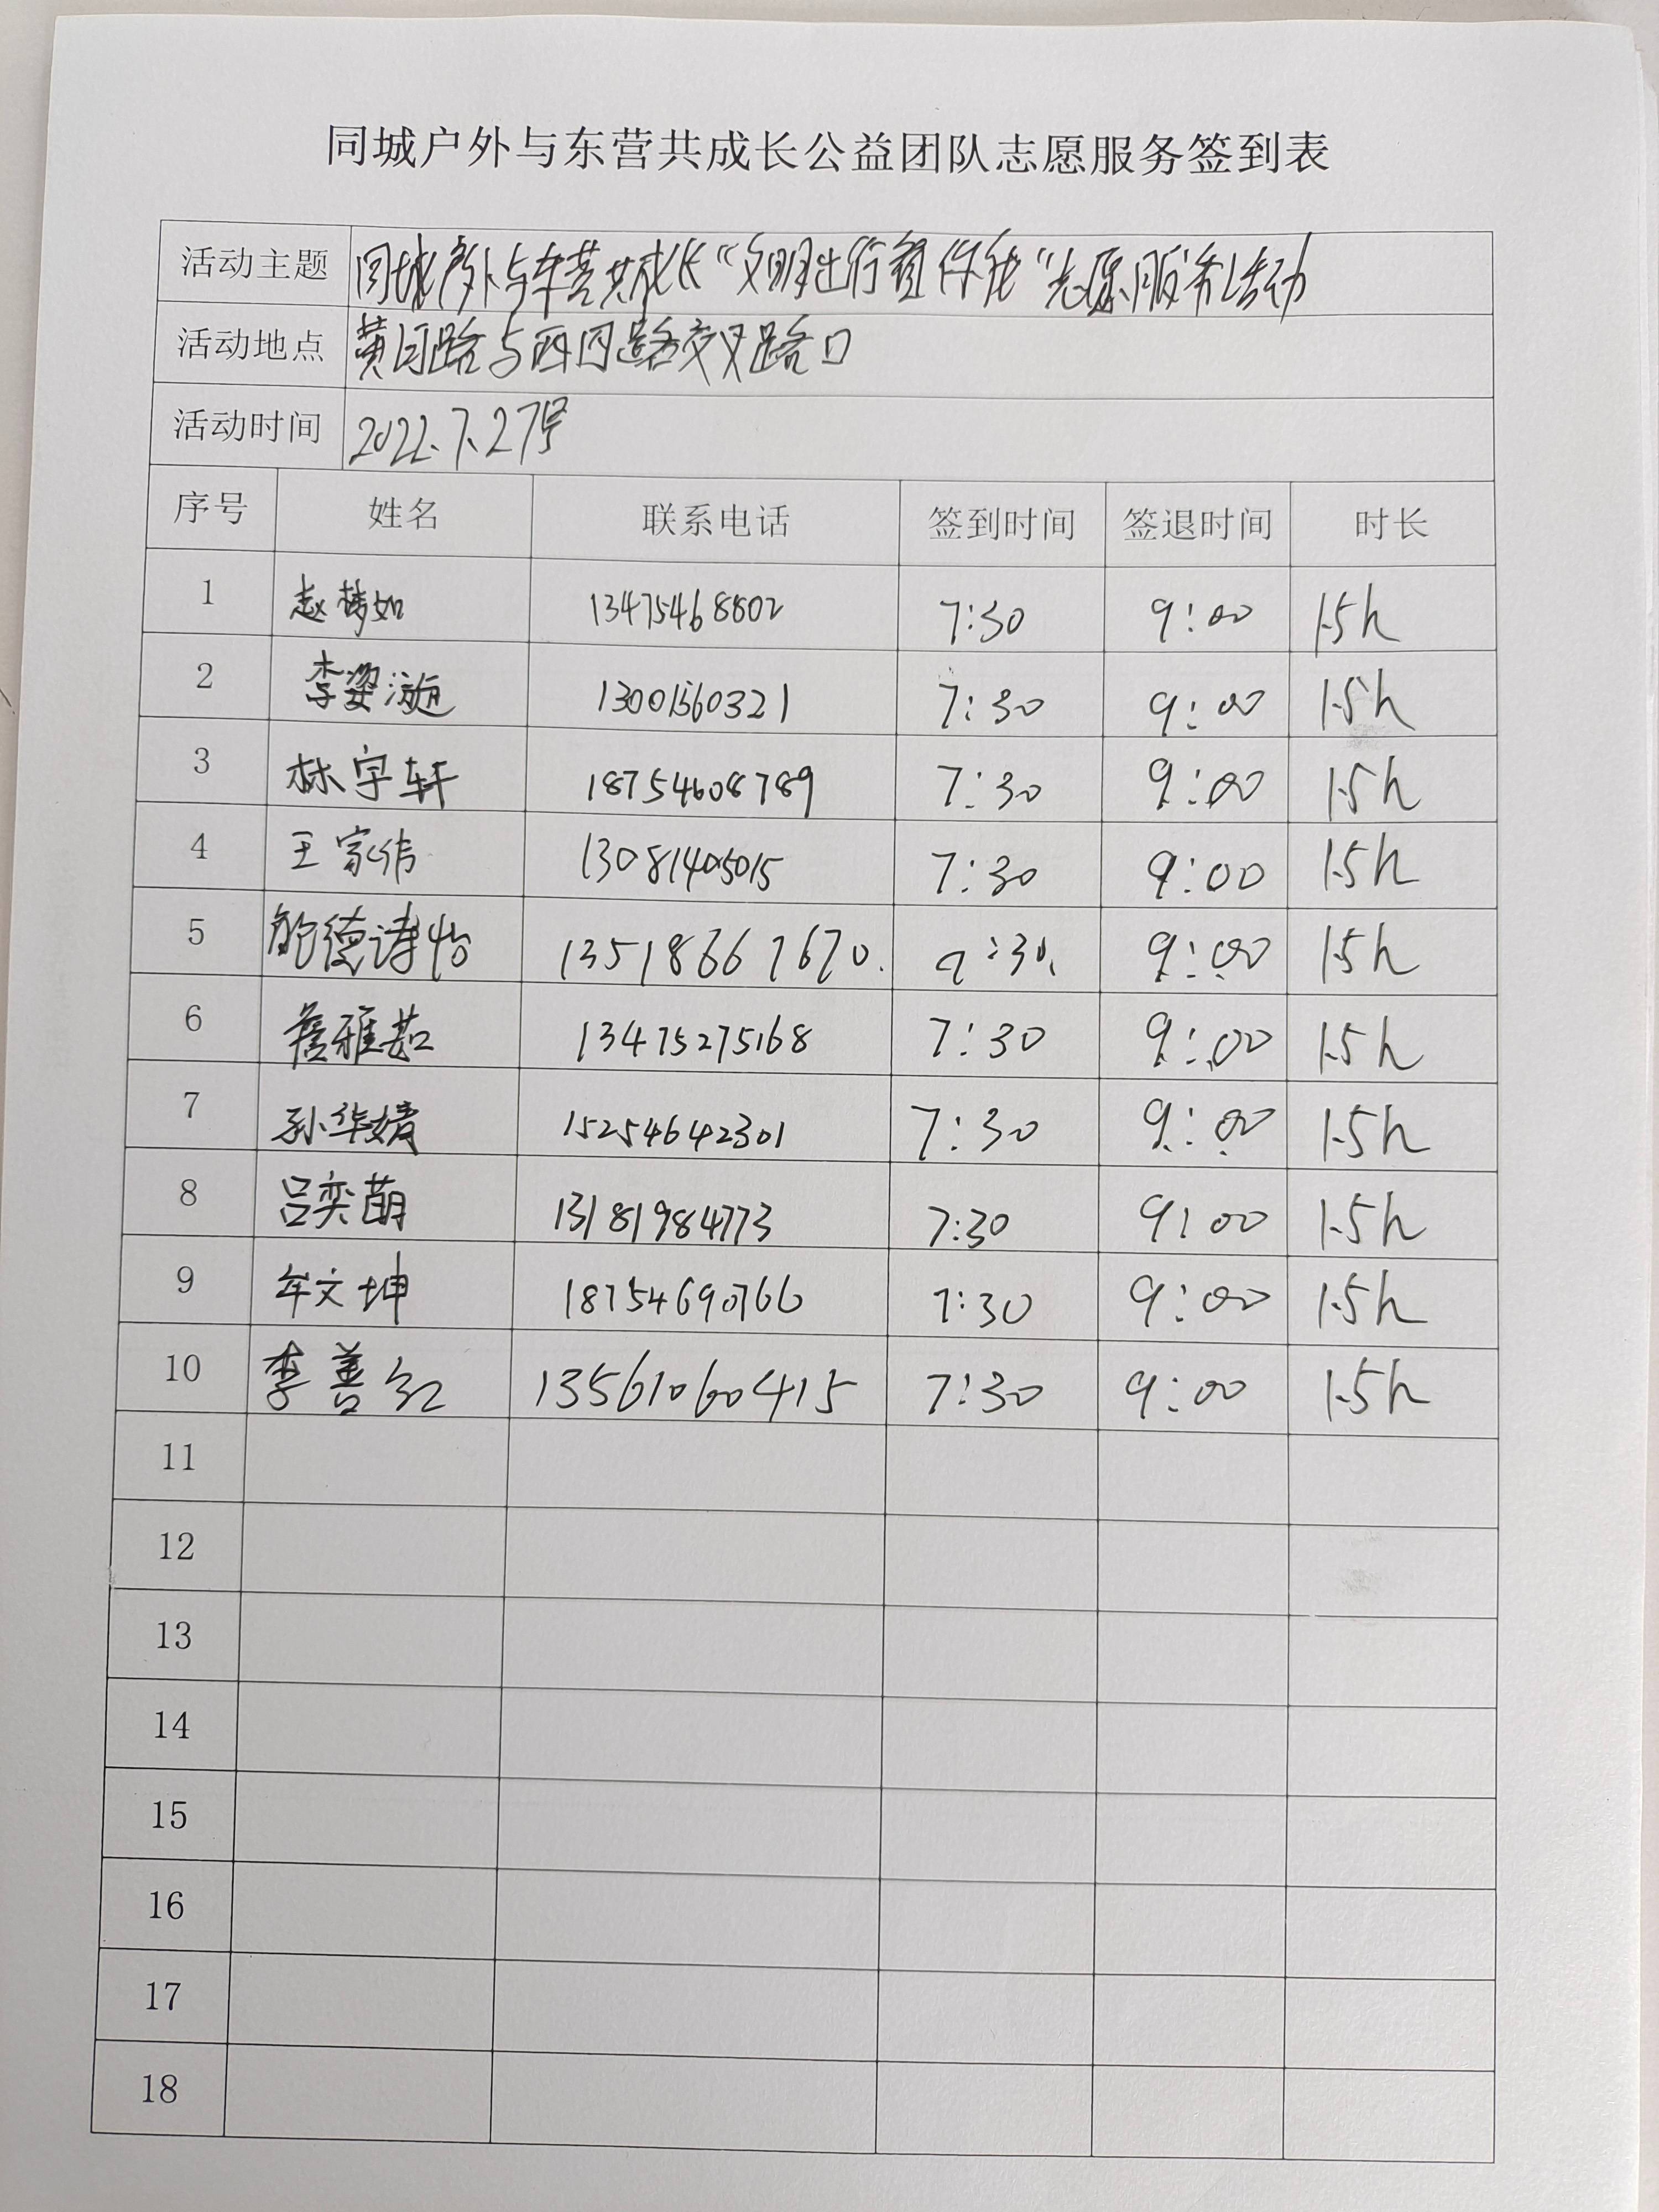 同城户外与东营共成长公益团队志愿服务签到表
活动主题 同城户外与东营共成长“文明出行有你我”志愿服务活动
活动地点 黄河路与西四路交叉路口
活动时间 2022.7.27号
序号 姓名 联系电话 签到时间 签退时间 时长
1 赵梦如 13475468802 7:30 9:00 1.5h
2 李姿漩 13001560321 7:30 9:00 1.5h
3 林宇轩 18754608789 7:30 9:00 1.5h
4 王家伟 13081405015 7:30 9:00 1.5h
5 鲍德诗怡 13518667670. 7:30. 9:00 1.5h
6 詹雅茹 13475275168 7:30 9:00 1.5h
7 孙华婧 15254642301 7:30 9:00 1.5h
8 吕奕萌 13181984773 7:30 9:00 1.5h
9 牟文坤 18754690766 7:30 9:00 1.5h
10 李善红 13561060415 7:30 9:00 1.5h
11
12
13
14
15
16
17
18